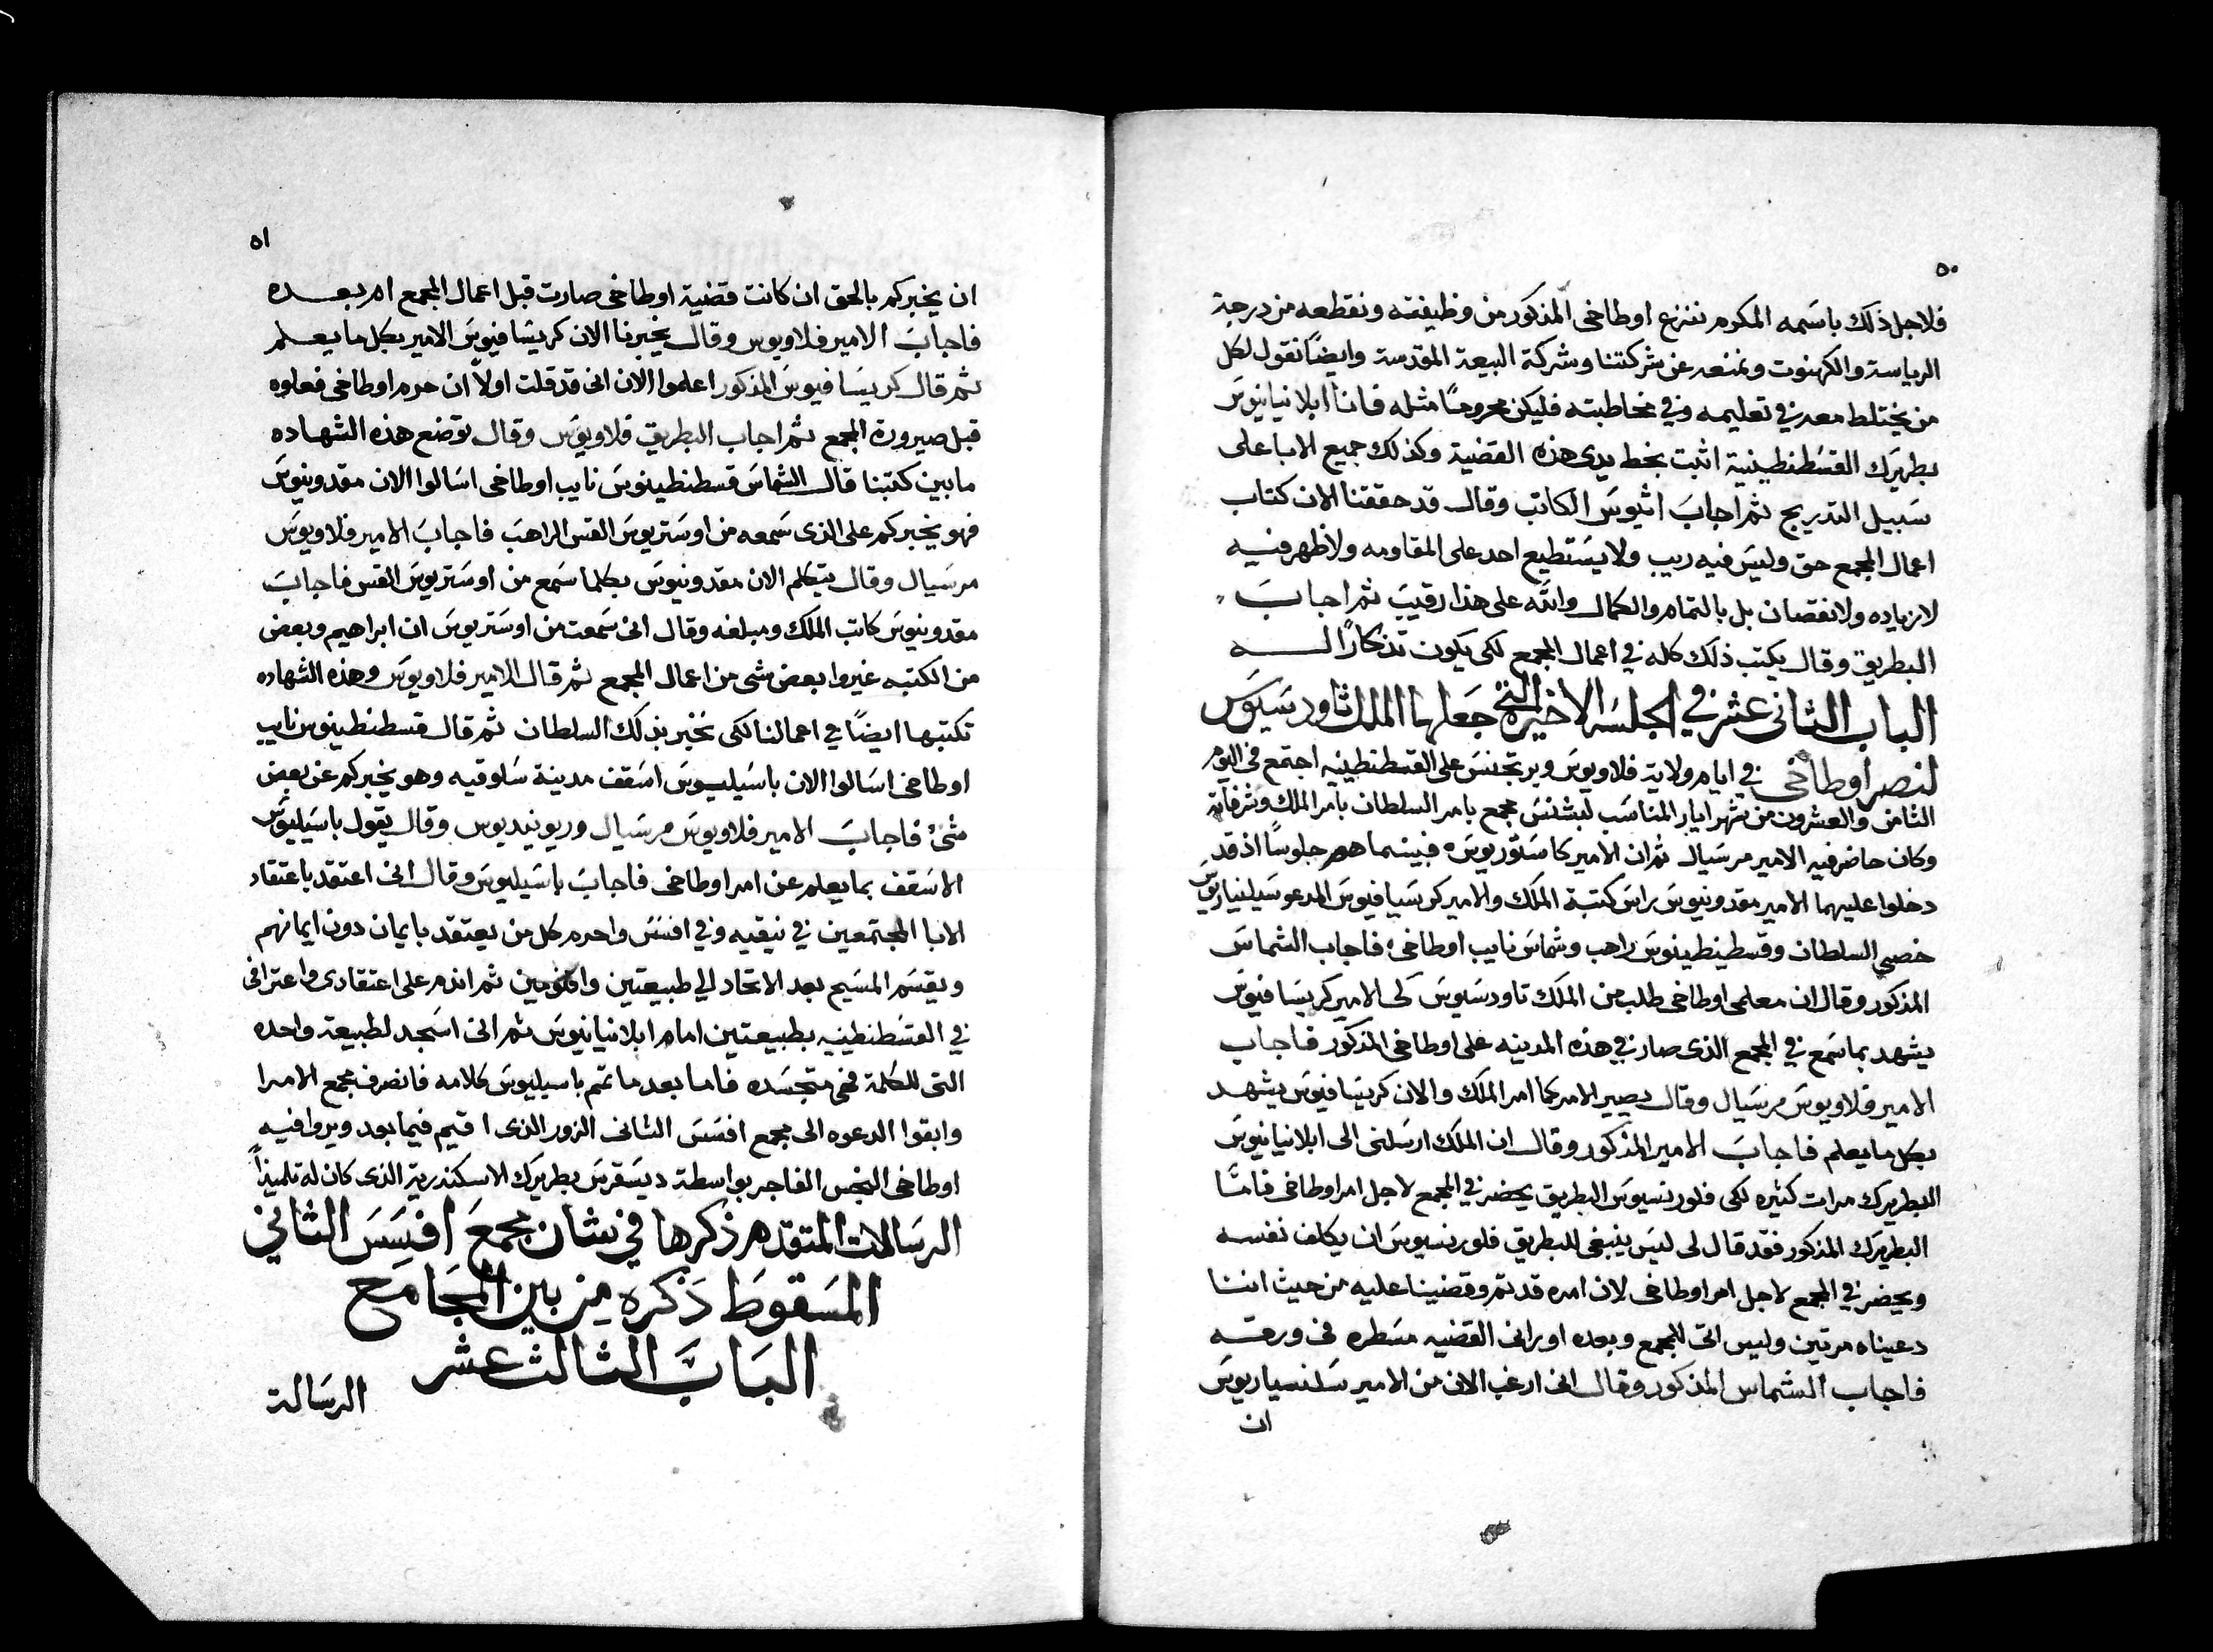 ٥٠
فلاجل ذلك باسمه المكرم ننزع اوطاخى المذكور من وظيفته ونقطعه من درجة
الرياسة والكهنوت ونمنعه عن شركتنا وشركة البيعة المقدسة وايضًا نقول لكل
من يختلط معه في تعليمه وفي مخاطبته فليكن محرومًا مثله فانا ابلانيانيوس
بطريرك القسطنطينية اثبت بخط يدى هذه القضية وكذلك جميع الابا على
سبيل التدريج ثم اجاب اثيوس الكاتب وقال قد حققنا الان كتاب
اعمال المجمع حق وليس فيه ريب ولا يستطيع احد على المقاومه ولا ظهر فيه
لا زياده ولا نقصان بل بالتمام والكمال والله على هذا رقيب ثم اجاب
البطريق وقال يكتب ذلك كله في اعمال المجمع لكى يكون تذكارًا له
الباب الثانى عشر في الجلسه الاخيره التى جعلها الملك ثاودسيوس
لنصر اوطاخى في ايام ولاية فلاويوس وبرتجنس على القسطنطينيه اجتمع فى اليوم
الثامن والعشرون من شهر ايار المناسب لبشنس مجمع بامر السلطان بامر الملك وشرفاته
وكان حاضر فيه الامير مرسيال ثم ان الامير كاستوريوس ه فبينما هم جلوسًا اذ قد
دخلوا عليهما الامير مقدونيوس راس كتبة الملك والامير كريسيافيوس المدعو سيلنياريوس
خصي السلطان وقسطينطينوس راهب وشماس نايب اوطاخى؛ فاجاب الشماس
المذكور وقال ان معلمى اوطاخى طلب من الملك تاودسيوس لكى الامير كريسافيوس
يشهد بما سمع في المجمع الذى صار في هذه المدينه على اوطاخى المذكور فاجاب
الامير فلاويوس مرسيال وقال يصير الامر كما امر الملك والان كريسافيوس يشهد
بكل ما يعلم فاجاب الامير المذكور وقال ان الملك ارسلنى الى ابلانيانيوس
البطريرك مرات كثيره لكى فلورنسيوس البطريق يحضر في المجمع لاجل امر اوطاخى فامّا
البطريرك المذكور فقد قال لى ليس ينبغى للبطريق فلورنسيوس ان يكلف نفسه
ويحضر في المجمع لاجل امر اوطاخى لان امره قد تم وقضينا عليه من حيث اننا
دعيناه مرتين وليس اتى للمجمع وبعده اورانى القضيه مسطره فى ورقه
فاجاب الشماس المذكور وقال انى ارغب الان من الامير سلنسياريوس
ان
٥١
ان يخبركم بالحق ان كانت قضية اوطاخى صارت قبل اعمال المجمع ام بعده
فاجاب الامير فلاويوس وقال يخبرنا الان كريسافيوس الامير بكل ما يعلم
ثم قال كريسافيوس المذكور اعلموا الان انى قد قلت اولاً ان حرم اوطاخى فعلوه
قبل صيرورة المجمع ثم اجاب البطريق فلاويوس وقال توضع هذه الشهاده
ما بين كتبنا قال الشماس قسطنطينوس نايب اوطاخى اسالوا الان مقدونيوس
فهو يخبركم على الذى سمعه من اوستريوس القس الراهب فاجاب الامير فلاويوس
مرسيال وقال يتكلم الان مقدونيوس بكلما سمع من اوستريوس القس فاجاب
مقدونيوس كاتب الملك ومبلغه وقال انى سمعت من اوستريوس ان ابراهيم وبعض
من الكتبه غيروا بعض شى من اعمال المجمع ثم قال الامير فلاويوس وهذه الشهاده
تكتبها ايضًا في اعمالنا لكى نخبر بذلك السلطان ثم قال قسطنطينوس نايب
اوطاخى اسالوا الان باسيليوس اسقف مدينة سلوقيه وهو يخبركم عن بعض
شئ فاجاب الامير فلاويوس مرسيال وريونيديوس وقال يقول باسيليوس
الاسقف بما يعلم عن امر اوطاخى فاجاب باسيليوس وقال انى اعتقد باعتقاد
الابا المجتمعين في نيقيه وفي افسس واحرم كل من يعتقد بايمان دون ايمانهم
ويقسم المسيح بعد الاتحاد الي طبيعتين واقنومين ثم اندم على اعتقادى واعترافى
في القسطنطينيه بطبيعتين امام ابلانيانيوس ثم انى اسجد لطبيعة واحده
التى للكلمة فهى متجسده فاما بعد ما تم باسيليوس كلامه فانصرف مجمع الامرا
وابقوا الدعوه الى مجمع افسس الثانى الزور الذى اقيم فيما بعد ويروا فيه
اوطاخى النجس الفاجر بواسطة ديسقرس بطريرك الاسكندرية الذى كان له تلميذاً
الرسالات المتقدم ذكرها في شان مجمع افسس الثاني
المسقوط ذكره من بين المجامع
الباب الثالث عشر
الرسالة